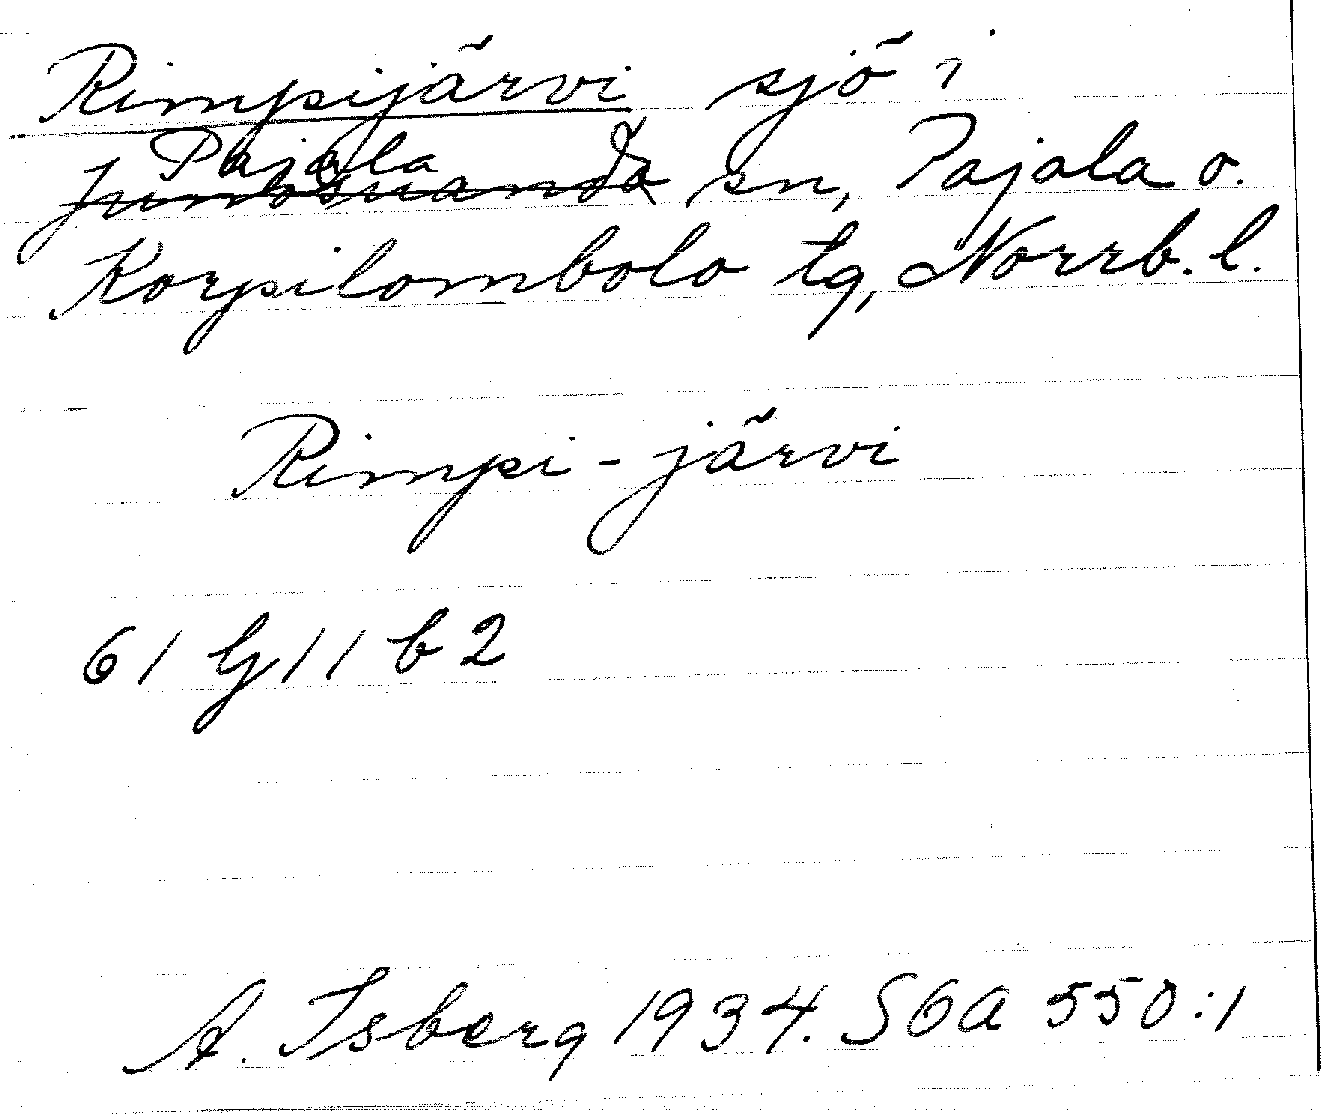 Rimpijärvi sjö i
Pajala
Junosuando sn, Pajala o.
Korpilombolo tg, Norrb. l.
Rimpi-järvi
61 G 11 b 2
A. Isberg 1934. SOA 550:1